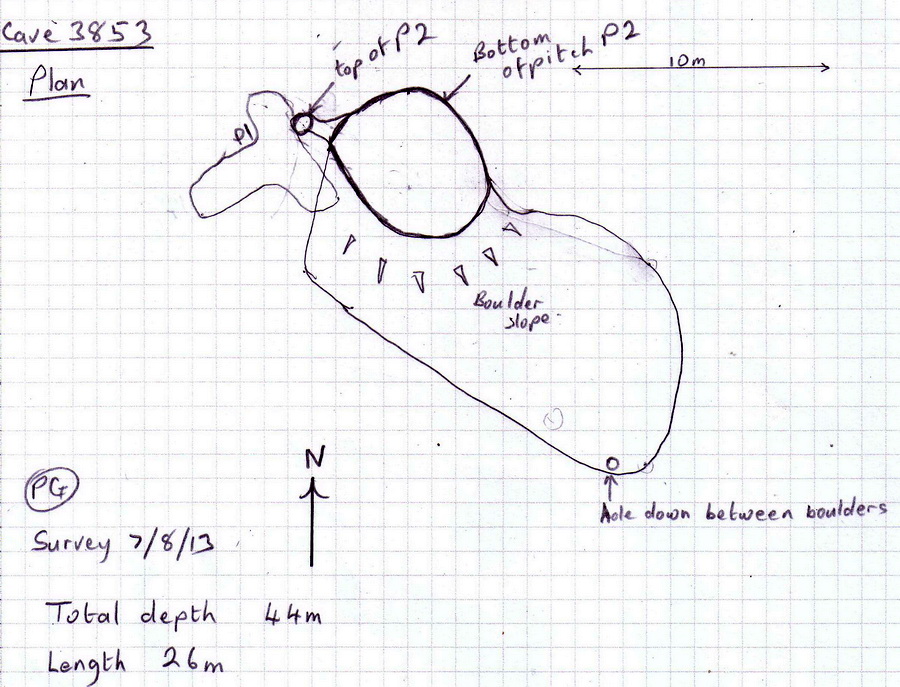 Cave 3853
Plan
top of P2
Bottom
of pitch P2
10m
P1
Boulder
slope
N
PG
Hole down between boulders
Survey 7/8/13
Total depth 44m
Length 26m